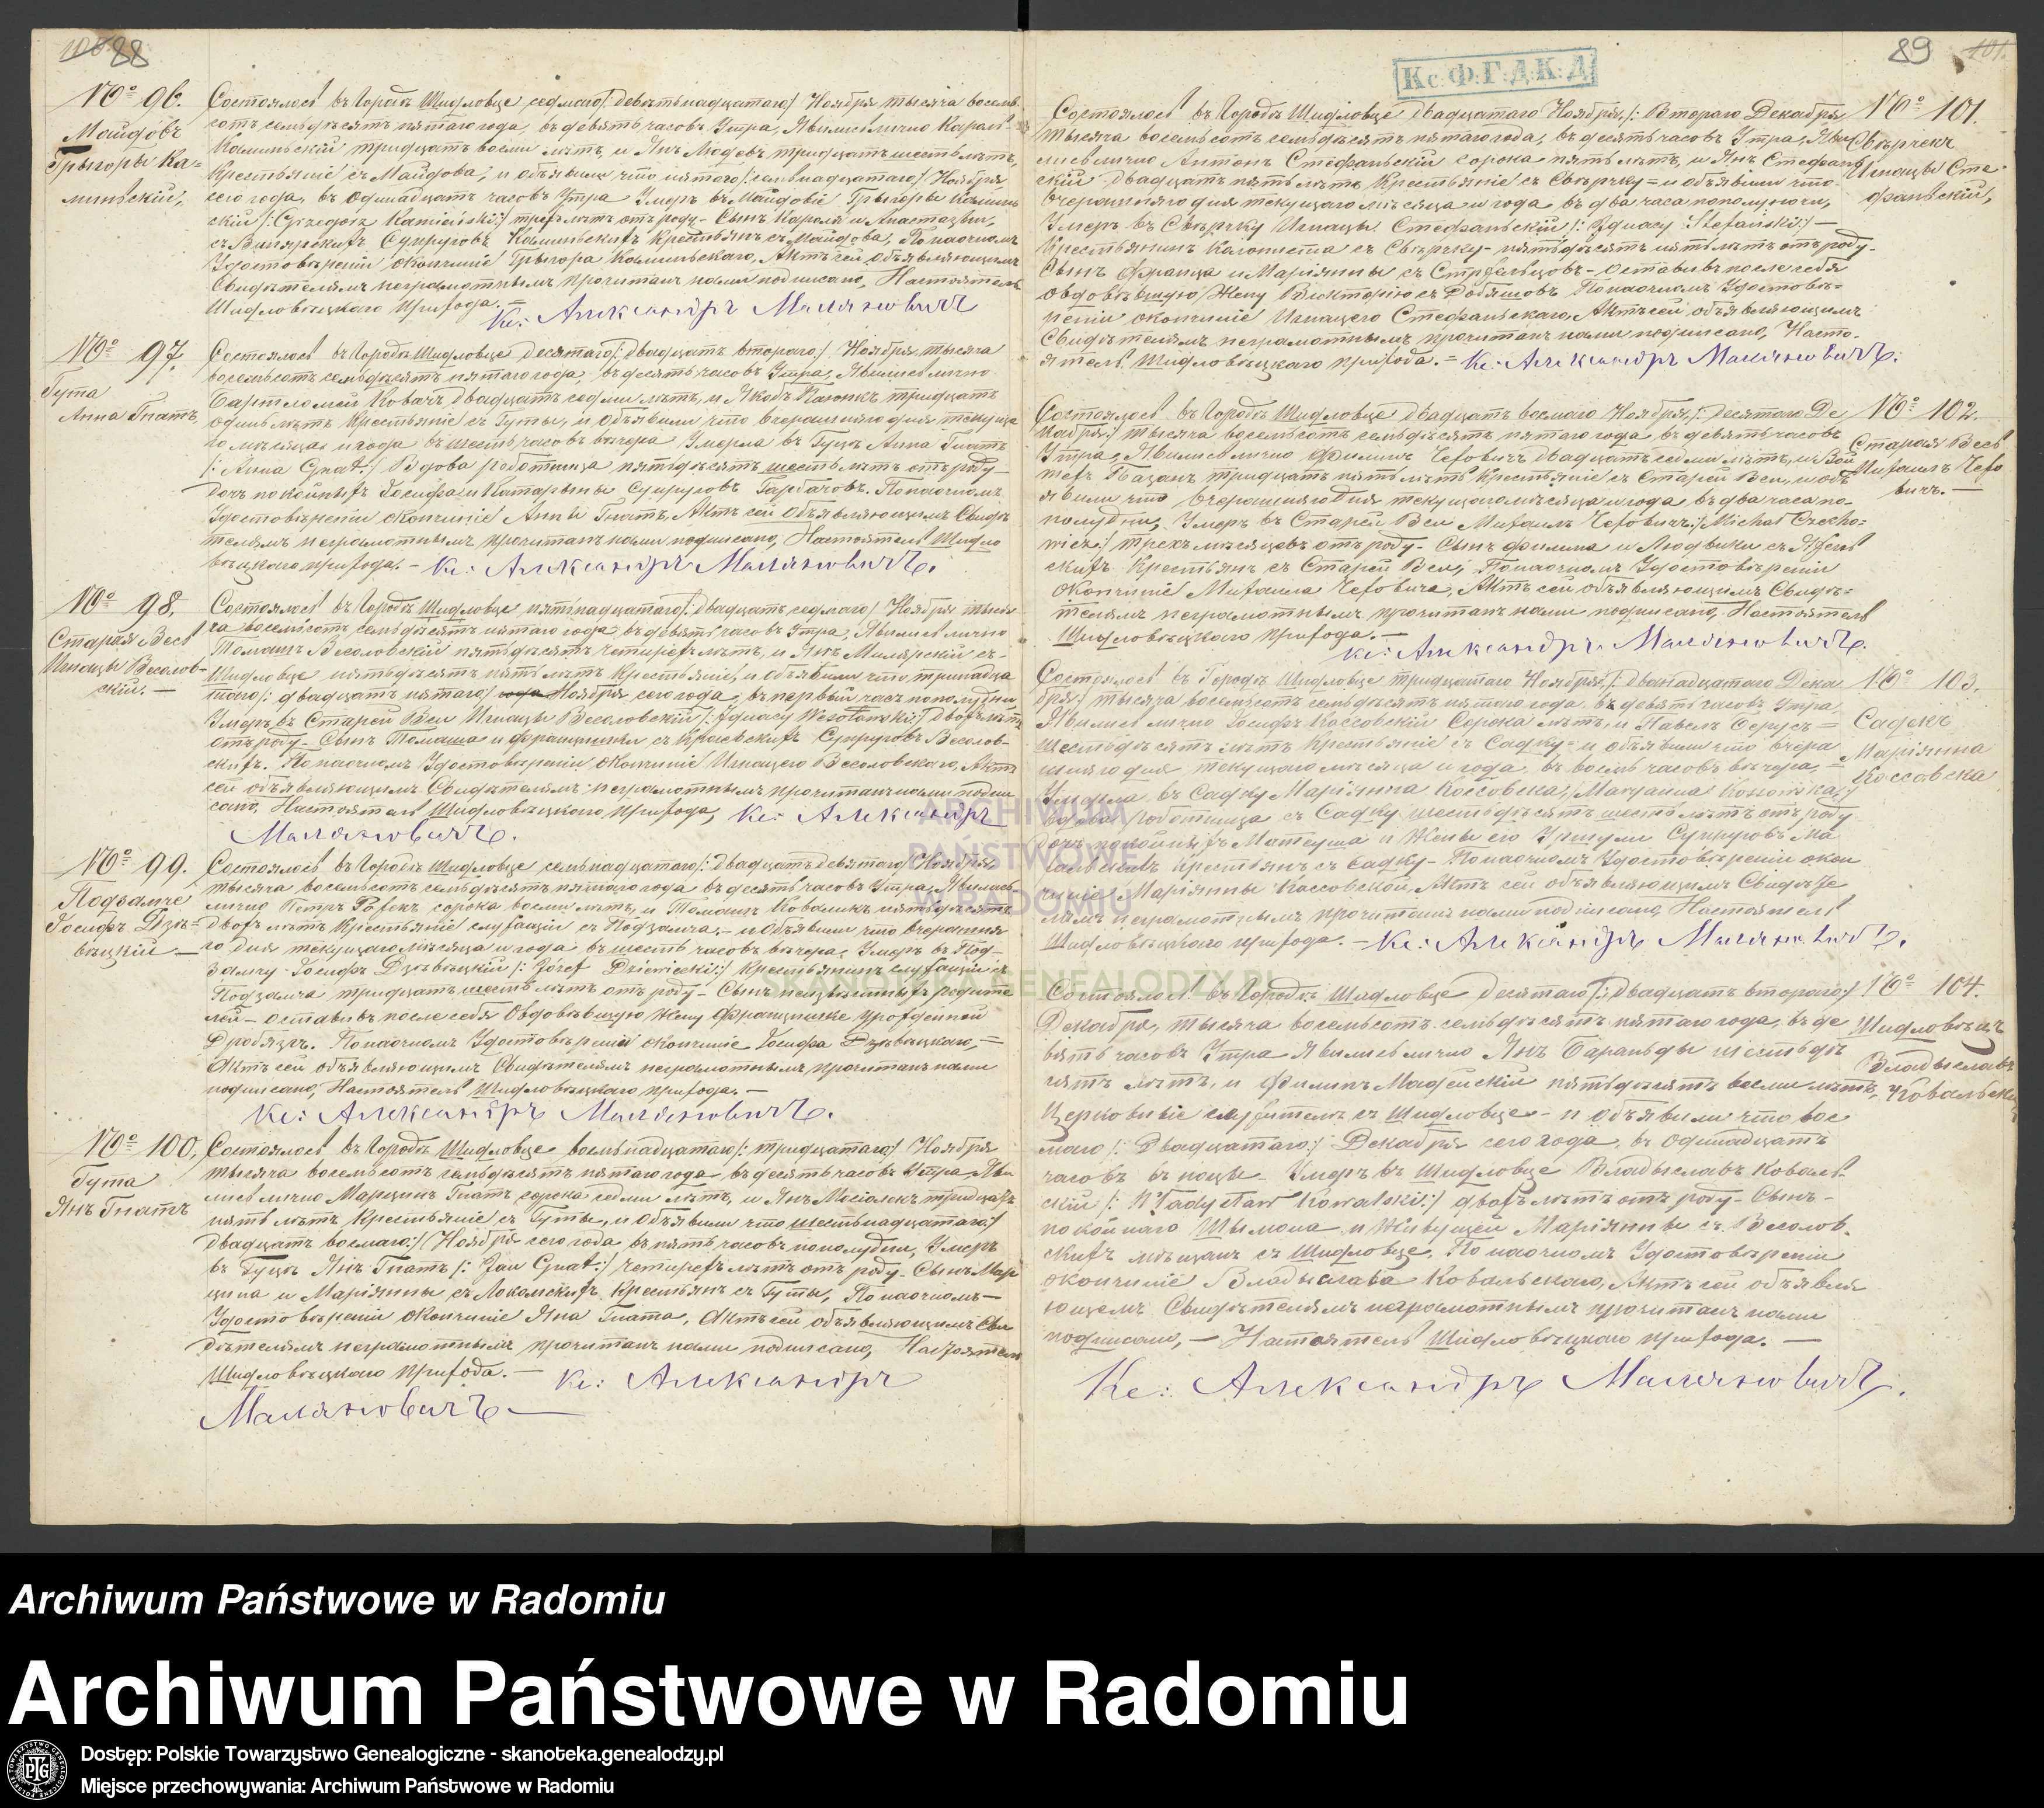 88
№ 96.
Майдовъ
Грыгоры Ка=
миньскій,
Состоялось въ Городѣ Шидловце седмаго /: девятьнадцатаго / Ноября тысяча восемь
сотъ семьдѣсятъ пятаго года, въ девять часовъ Утра, Явились лично Кароль
Каминьскій тридцать восемь лѣтъ, и Янъ тридцать шесть лѣтъ,
Крестьяніе съ Майдова, и объявили что пятаго /: семьнадцатаго / Ноября
сего года, въ одинадцать часовъ Утра Умеръ въ Майдовіе Грыгоры Каминь
скій /: Grzegorz Kamieński :/ трехъ лѣтъ отъ роду - Сынъ Кароля и Анастазіи,
Супруговъ Каминьскихъ Крестьянъ съ Майдова, По наочномъ
Удостовѣреніи окончиніе Грыгора Каминьскаго, Актъ сей объявляющимъ
Свидѣтелямъ неграмотнымъ прочитанъ нами подписано, Настоятель
Шидловѣцкаго прихода. = Кс: Александръ
№ 97.
Гута
Анна Гнатъ,
Состоялось въ Городѣ Шидловце десятаго /: двадцать втораго :/ Ноября тысяча
восемьсотъ семьдѣсятъ пятаго года, въ десять часовъ Утра, Явились лично
Бартломей Ковачъ двадцать седми лѣтъ, и Якобъ тридцать
одинъ лѣтъ Крестьяніе съ Гуты, и объявили что вчерашняго дня текуща
го мѣсяца и года въ шесть часовъ вечера, Умерла въ Гуце Анна Гнатъ
/: Anna Gnat :/ Вдова роботница пятьдѣсятъ шесть лѣтъ отъ роду -
дочь покойныхъ Іосифа и Катарыны Супруговъ Гарбачовъ. По наочномъ
Удостовѣреніи окончиніе Анны Гнатъ, Актъ сей объявляющимъ Свидѣ
телямъ неграмотнымъ прочитанъ нами подписано, Настоятель Шидло
вѣцкаго прихода. - Кс: Александръ
№ 98.
Старая Весь
Игнацы Весолов-
скій. —
Состоялось въ Городѣ Шидловце пятьнадцатаго /: двадцать седмаго / Ноября тыся
ча восемьсотъ семьдѣсятъ пятаго года въ девять часовъ Утра, Явились лично
Томашъ Весоловскій пятьдѣсятъ четирехъ лѣтъ, и Янъ Милярскій съ-
Шидловце пятьдѣсятъ пять лѣтъ Крестьяніе, и объявили что тринадца
таго /: двадцать пятаго / Ноября сего года, въ первый часъ пополудни,
Умеръ въ Старей Вси Игнацы Весоловскій /: Ignacy Wesołowski :/ двохъ лѣтъ
отъ роду - Сынъ Томаша и Францишки съ Супруговъ Весолов-
скихъ. По наочномъ Удостовѣреніи окончиніе Игнацего Весоловскаго, Актъ
сей объявляющимъ Свидѣтелямъ неграмотнымъ прочитанъ нами подпи
сано, Настоятель Шидловѣцкаго прихода, Кс: Александръ
№ 99.
Подзамче
Іосифъ Дзѣ=
вѣцкій —
Состоялось въ Городѣ Шидловце семьнадцатаго /: двадцать девятаго / Ноября,
тысяча восемьсотъ семьдѣсятъ пятаго года въ десять часовъ Утра, Явились
лично Петръ сорока восемь лѣтъ, и Томашъ Коваликъ пятьдѣсятъ
двохъ лѣтъ Крестьяніе служащіи съ Подзамча, - и объявили что вчерашня
го дня текущаго мѣсяца и года въ шесть часовъ вечера, Умеръ въ Под-
замчу Іосифъ Дзѣвѣцкій /: Józef Dziewiecki :/ Крестьянинъ служащій съ
Подзамча тридцать шесть лѣтъ отъ роду - Сынъ неизвѣстныхъ родите
лей - оставивъ после себя Овдовѣвшую Жену Францишке урожденной
По наочномъ Удостовѣреніи окончиніе Іосифа Дзѣвѣцкаго, =
Актъ сей объявляющимъ Свидѣтелямъ неграмотнымъ прочитанъ нами
подписано, Настоятель Шидловѣцкаго прихода. —
Кс: Александръ
№ 100,
Гута
Янъ Гнатъ
Состоялось въ Городѣ Шидловце восемьнадцатаго /: тридцатаго / Ноября
тысяча восемьсотъ семьдѣсятъ пятаго года, въ десять часовъ Утра, Яви
лись лично Марцинъ Гнатъ сорока седми лѣтъ, и Янъ тридцать
пять лѣтъ Крестьяніе съ Гуты, и объявили что шестьнадцатаго /:
двадцать восмаго :/ Ноября сего года въ пять часовъ пополудни, Умеръ
въ Гуце Янъ Гнатъ /: Jan Gnat :/ четирехъ лѣтъ отъ роду - Сынъ Мар
цина и Маріянны съ Крестьянъ съ Гуты, По наочномъ —
Удостовѣреніи окончиніе Яна Гната, Актъ сей объявляющимъ Сви
дѣтелямъ неграмотнымъ прочитанъ нами подписано, Настоятель
Шидловѣцкаго прихода. — Кс: Александръ
89
Кс.Ф.Г.Д.К.Д
№ 101.
Свѣрчекъ
Игнацы Сте
фаньскій,
Состоялось въ Городѣ Шидловце двадцатаго Ноября, /: Втораго Декабря
тысяча восемьсотъ семьдѣсятъ пятаго года, въ десять часовъ Утра, Яви
лись лично Антонъ Стефаньскій сорока пять лѣтъ, и Янъ Стефань
скій двадцать пять лѣтъ Крестьяніе съ Свѣрчку = и объявили что
вчерашняго дня текущаго мѣсяца и года въ два часа пополудни,
Умеръ въ Свѣрчку Игнацы Стефаньскій /: Ignacy Stefański :/ —
Крестьянинъ съ Свѣрчку - пятьдѣсятъ пять лѣтъ отъ роду -
Сынъ Франца и Маріянны съ - оставивъ после себя
овдовѣвшую Жену Викторію съ По наочномъ Удостовѣ=
реніи окончиніе Игнацего Стефаньскаго, Актъ сей объявляющимъ
Свидѣтелямъ неграмотнымъ прочитанъ нами подписано, Насто-
ятель Шидловѣцкаго прихода. = Кс: Александръ
№ 102.
Старая Весь
Михаилъ Чехо
вичъ. —
Состоялось въ Городѣ Шидловце двадцать восмаго Ноября, /: десятаго Де
кабря :/ тысяча восемьсотъ семьдѣсятъ пятаго года въ девять часовъ
Утра, Явились лично Филипъ Чеховичъ двадцать седми лѣтъ, и Вой
техъ Базанъ тридцать пять лѣтъ Крестьяніе съ Старей Вси, и объ
явили что вчерашняго дня текущаго мѣсяца и года въ два часа по-
полудни, Умеръ въ Старей Вси Михаилъ Чеховичъ :/ Michał Czecho=
wicz :/ трехъ мѣсяцевъ отъ роду - Сынъ Филипа и Людвики съ
скихъ Крестьянъ съ Старей Вси, По наочномъ Удостовѣреніи
окончиніе Михаила Чеховича, Актъ сей объявляющимъ Свидѣ-
телямъ неграмотнымъ прочитанъ нами подписано, Настоятель
Шидловѣцкаго прихода. —
Кс: Александръ
№ 103.
Садекъ
Маріянна
Коссовска
Состоялось въ Городѣ Шидловце тридцатаго Ноября /: дванадцатаго Дека
бря :/ тысяча восемьсотъ семьдѣсятъ пятаго года, въ девять часовъ Утра,
Явились лично Іосифъ Коссовскій сорока лѣтъ, и Павелъ =
шестьдѣсятъ лѣтъ Крестьяніе съ Садку = и объявили что вчера
шняго дня текущаго мѣсяца и года, въ восемь часовъ вечера, =
Умерла въ Садку Маріянна Коссовска, /Maryanna Kossowska/
вдова роботница съ Садку шестьдѣсятъ шесть лѣтъ отъ роду
дочь покойныхъ Матеуша и Жены его Уршули Супруговъ
Крестьянъ съ Садку - По наочномъ Удостовѣреніи окон
чиніе Маріянны Коссовской, Актъ сей объявляющимъ Свидѣте
лямъ неграмотнымъ прочитанъ нами подписано, Настоятель
Шидловѣцкаго прихода. - Кс: Александръ
№ 104.
Шидловѣцъ
Владыславъ
Ковальскій
Состоялось въ Городѣ Шидловце десятаго /: двадцать втораго :/
Декабря, тысяча восемьсотъ семьдѣсятъ пятаго года, въ де
вять часовъ Утра Явились лично Янъ шестьдѣ
сятъ лѣтъ, и Филипъ Маѣскій пятьдѣсятъ восемь лѣтъ,
Церковніе служители съ Шидловце - и объявили что вос
маго /: Двадцатаго :/ Декабря сего года, въ одинадцать
часовъ въ ноцы Умеръ въ Шидловце Владыславъ Коваль-
скій /: Władysław Kowalski :/ двохъ лѣтъ отъ роду - Сынъ -
покойнаго Шымона и Живущей Маріянны съ Весолов-
скихъ мѣщанъ съ Шидловце, По наочномъ Удостовѣреніи
окончиніе Владыслава Ковальскаго, Актъ сей объявля
ющемъ Свидѣтелямъ неграмотнымъ прочитанъ нами
подписано, — Настоятель Шидловѣцкаго прихода. —
Кс: Александръ
ARCHIWUM
PAŃSTWOWE
W RADOMIU
SKANOTEKA.GENEALODZY.PL
Archiwum Państwowe w Radomiu
Archiwum Państwowe w Radomiu
Dostęp: Polskie Towarzystwo Genealogiczne - skanoteka.genealodzy.pl
Miejsce przechowywania: Archiwum Państwowe w Radomiu